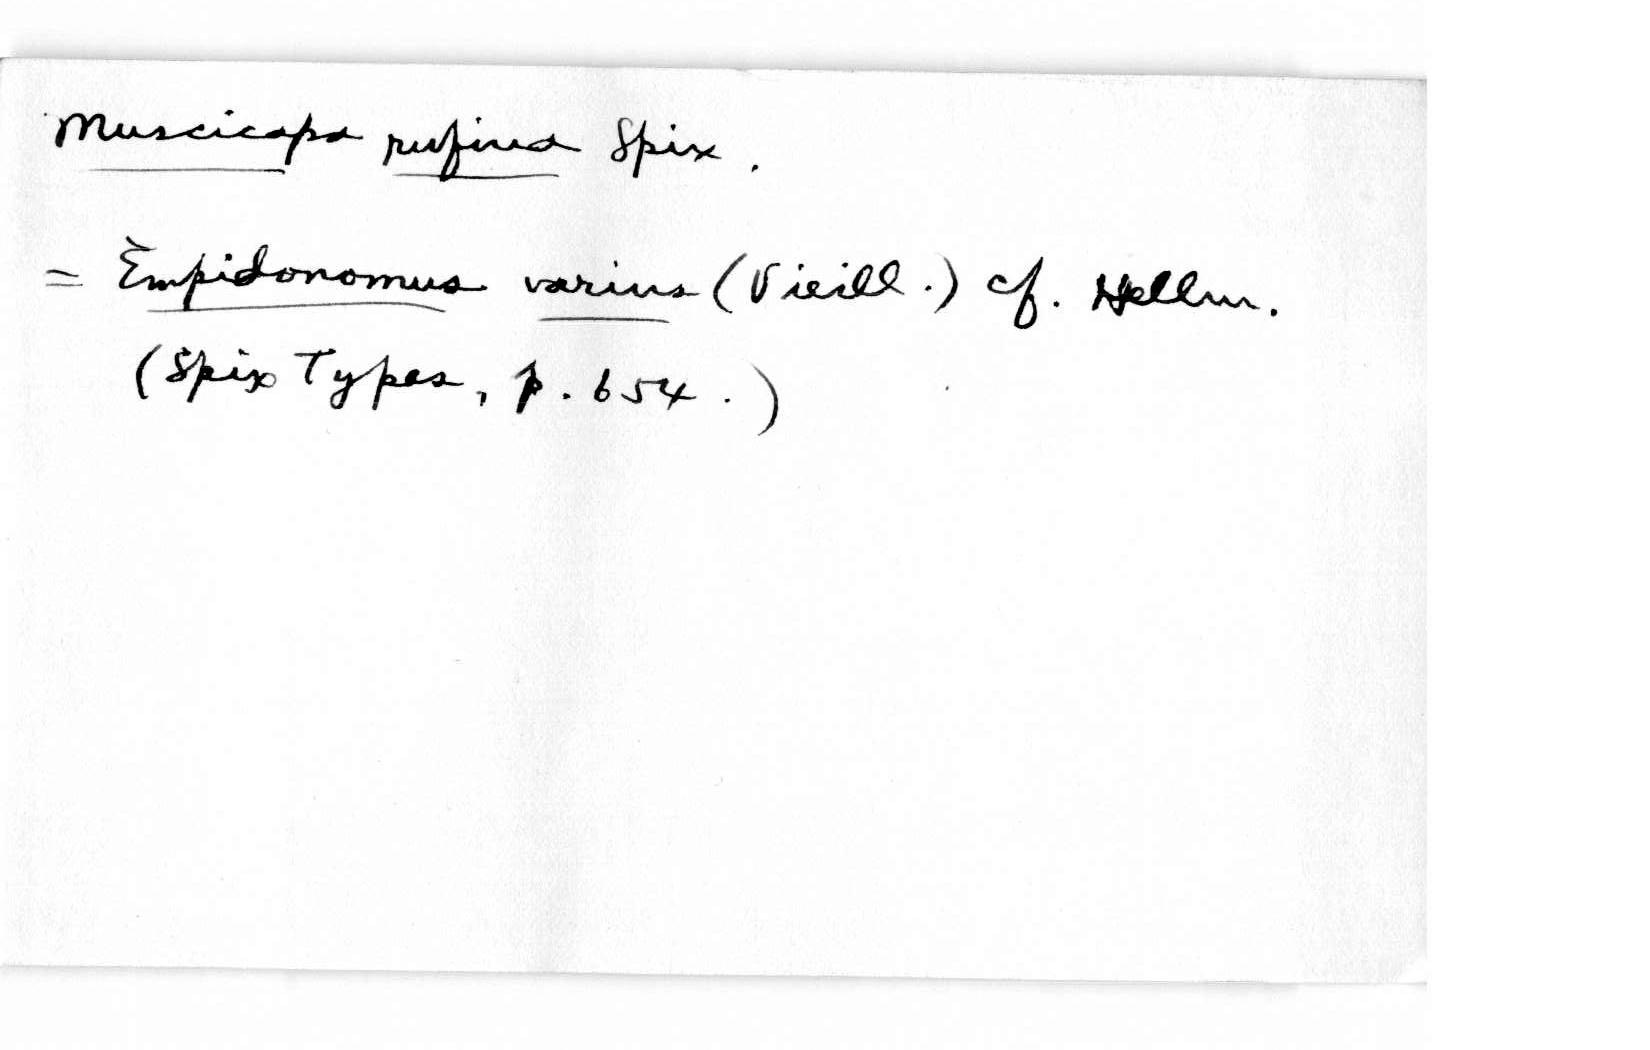 Muscicapa rufina Spix.
= Empidonomus varius (Vieill.) cf. Hellm.
(Spix Types, p. 654.)